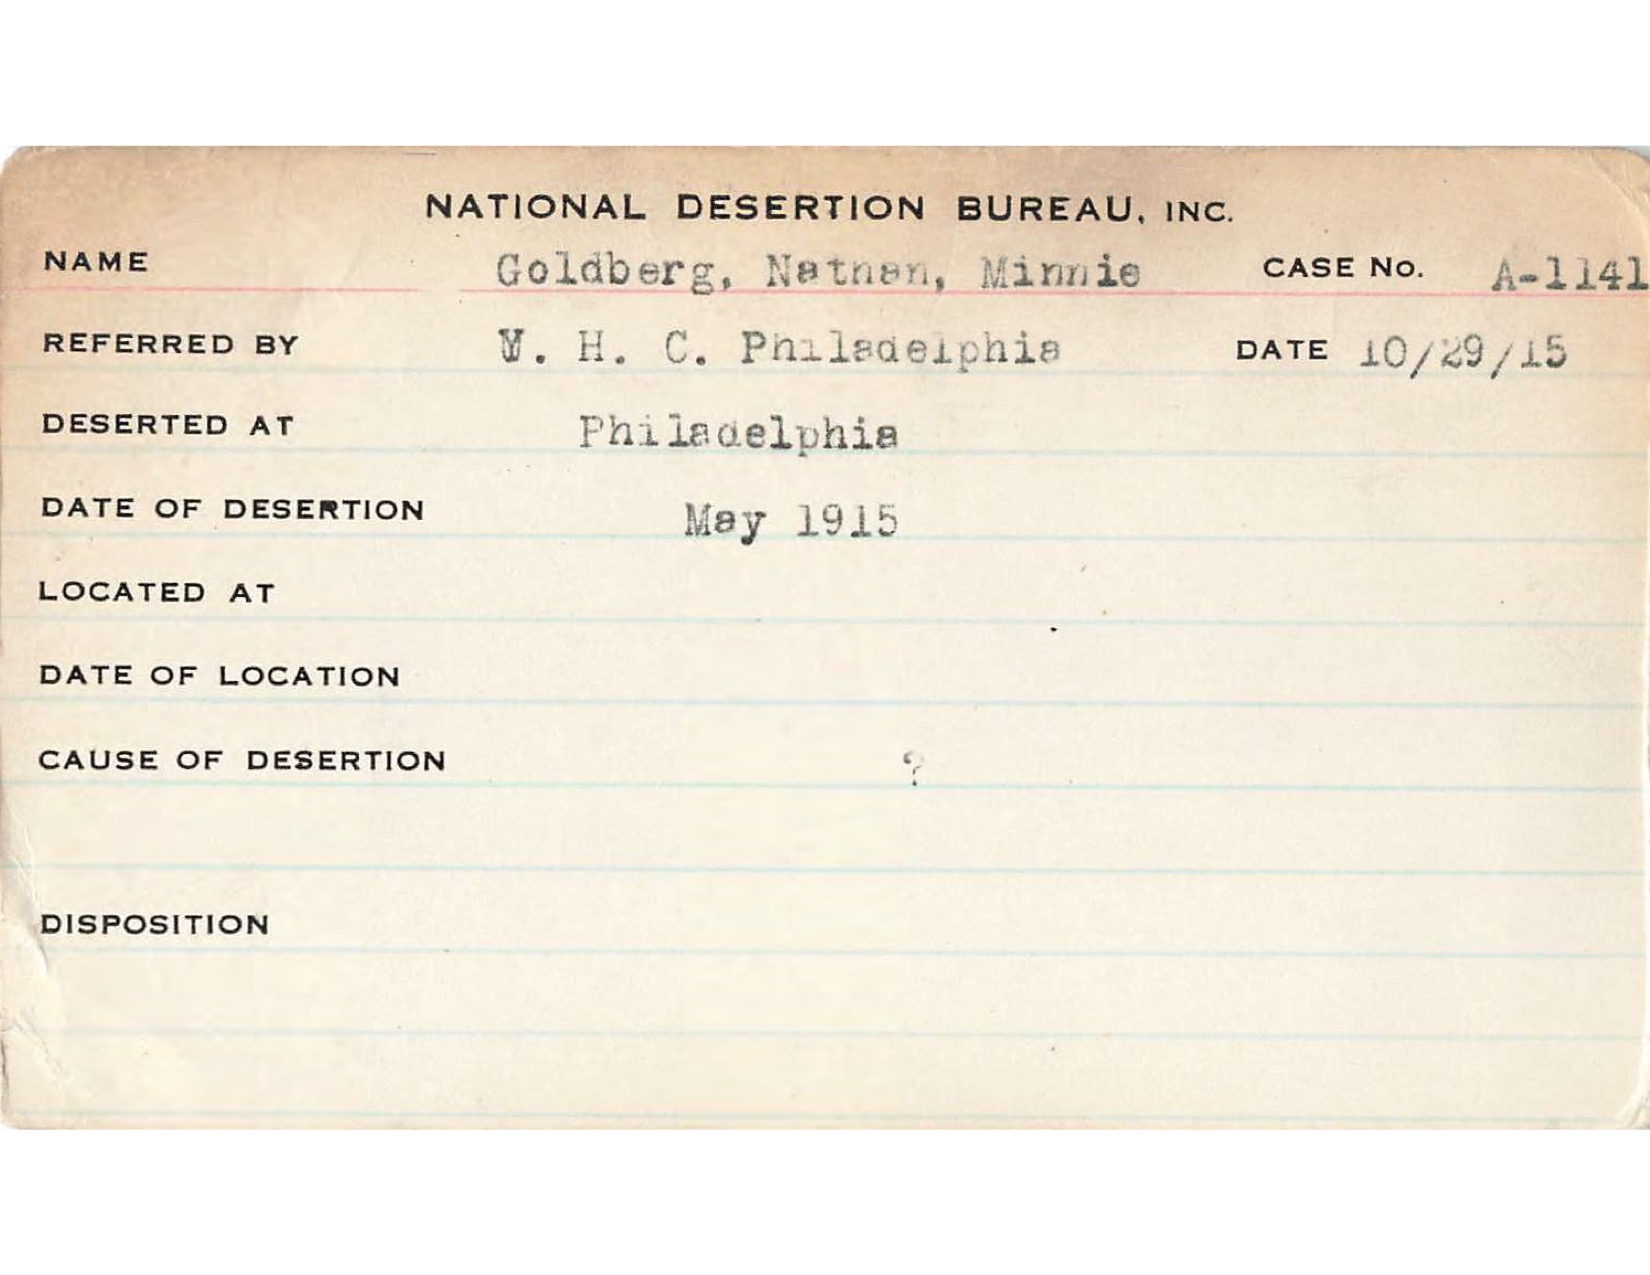 NATIONAL DESERTION BUREAU, INC.
NAME Goldberg, Nathan, Minnie CASE No. A-1141
REFERRED BY W. H. C. Philadelphia DATE 10/29/15
DESERTED AT Philadelphia
DATE OF DESERTION May 1915
LOCATED AT
DATE OF LOCATION
CAUSE OF DESERTION ?
DISPOSITION